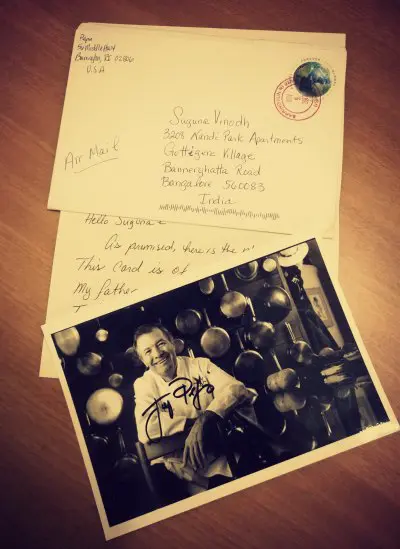 Pepin
Middle
Barrington, RI 02806
U.S.A
Suguna Vinodh
3203 Nandi Park Apartments
Gottigere Village
Air Mail
Bannerghatta Road
Bangalore 560083
India
Hello Suguna
As promised, here is the
This Card is of
My father